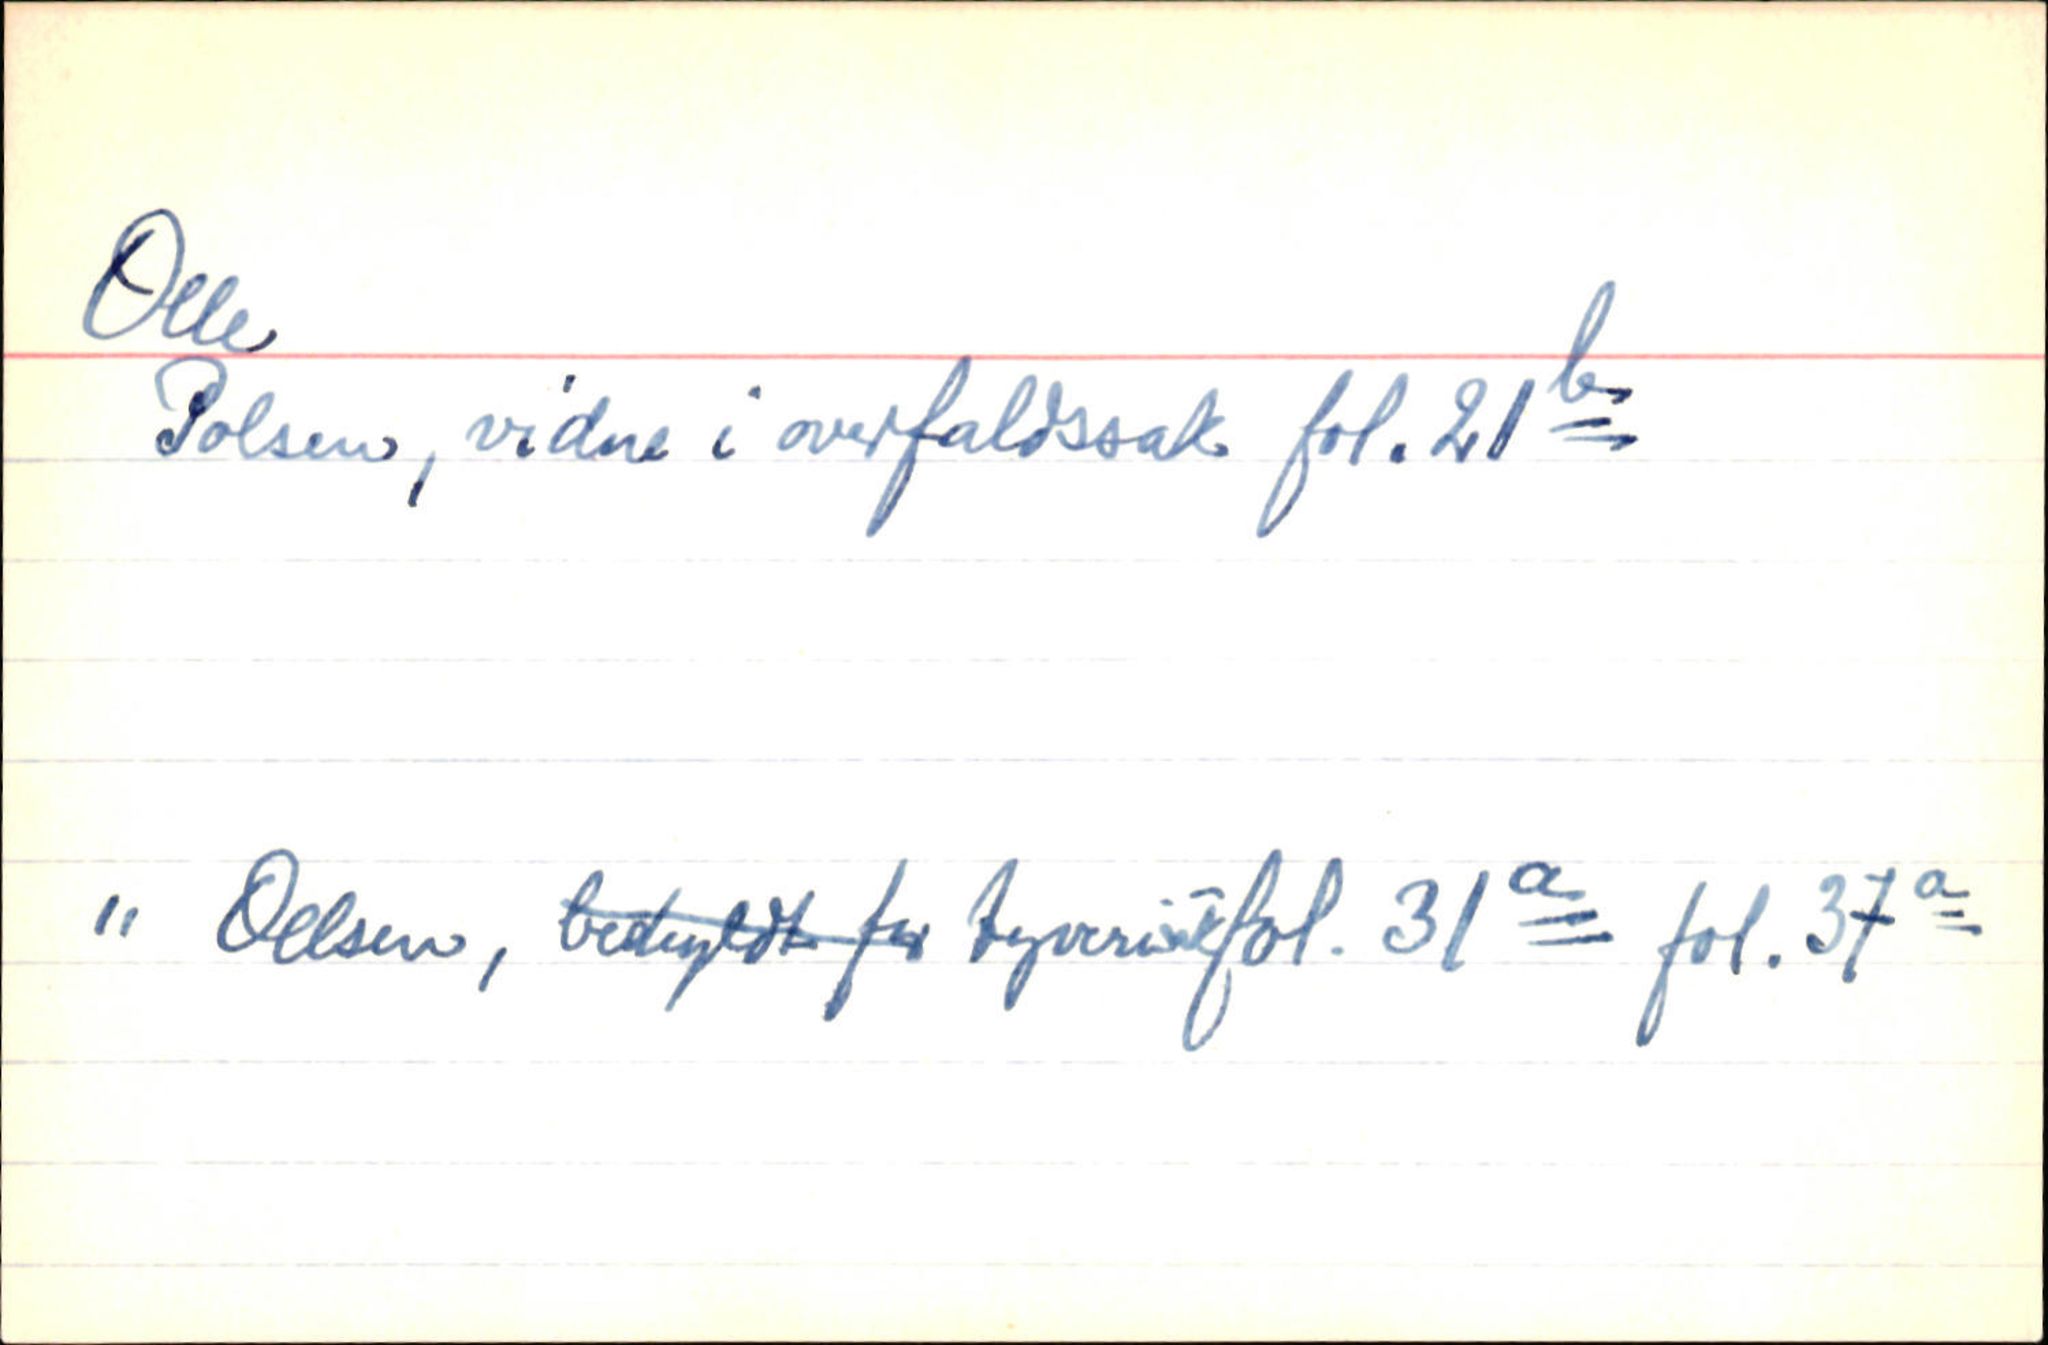 Olle
Polsen, vidne i overfaldssak fol. 21 b
" Oelsen, beskyldt for tyverisak fol. 31 a fol. 37 a